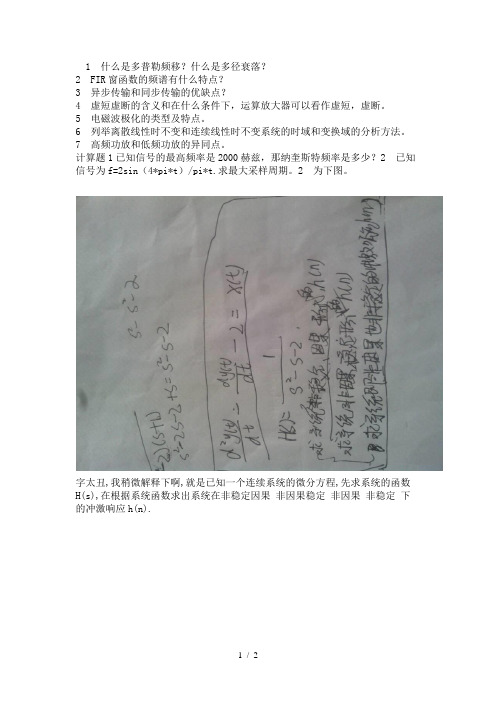 1 什么是多普勒频移？什么是多径衰落？
2 FIR窗函数的频谱有什么特点？
3 异步传输和同步传输的优缺点？
4 虚短虚断的含义和在什么条件下，运算放大器可以看作虚短，虚断。
5 电磁波极化的类型及特点。
6 列举离散线性时不变和连续线性时不变系统的时域和变换域的分析方法。
7 高频功放和低频功放的异同点。
计算题1已知信号的最高频率是2000赫兹，那纳奎斯特频率是多少？2 已知
信号为f=2sin（4*pi*t）/pi*t.求最大采样周期。2 为下图。
s-s²-2
2)(s+1)
s²-2s-2+s=s²-s-2
d²y(t)/dt - dy(t)/dt - 2 = x(t)
H(s)= 1/(s²-s-2)
求系统非稳定，因果 h(n)
求系统非因果稳定 h(n)
求系统既非因果也非稳定的 h(n)
字太丑,我稍微解释下啊,就是已知一个连续系统的微分方程,先求系统的函数
H(s),在根据系统函数求出系统在非稳定因果 非因果稳定 非因果 非稳定 下
的冲激响应h(n).
1 / 2